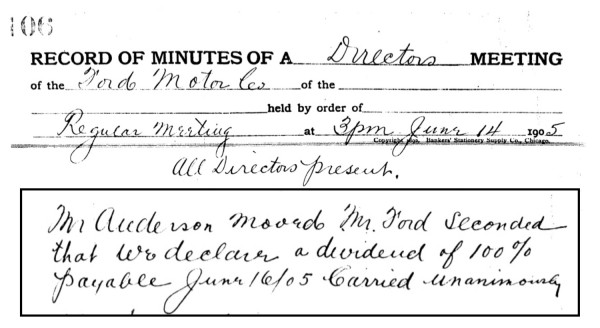 106
RECORD OF MINUTES OF A Directors MEETING
of the Ford Motor Co of the
held by order of
Regular Meeting at 3pm June 14 1905
Copyright 1898, Bankers' Stationery Supply Co., Chicago.
All Directors present.
Mr Anderson moved Mr. Ford Seconded
that We declare a dividend of 100%
payable June 16/05 Carried unanimously